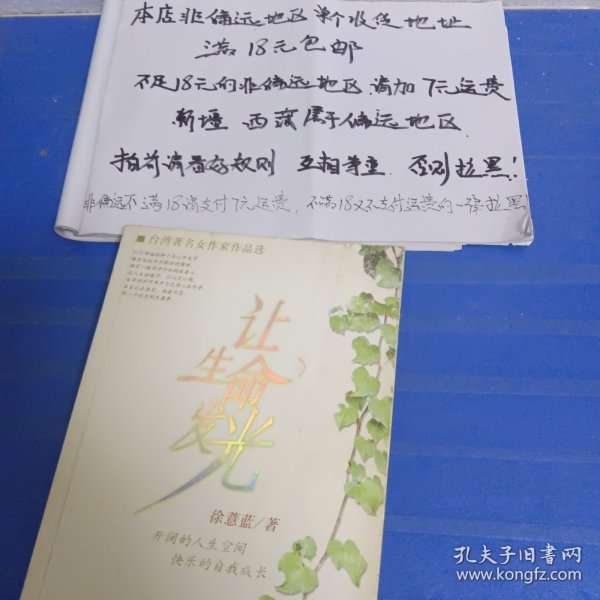 本店非偏远地区单个收货地址
满18元包邮
不足18元的非偏远地区请加7元运费
新疆 西藏属于偏远地区
拍前请看好规则 互相尊重 否则拉黑!
非偏远不满18请支付7元运费,不满18又不支付运费的一律拉黑
台湾著名女作家作品选
让
生命
发光
徐薏蓝/著
开阔的人生空间
快乐的自我成长
孔夫子旧书网
book.kongfz.com